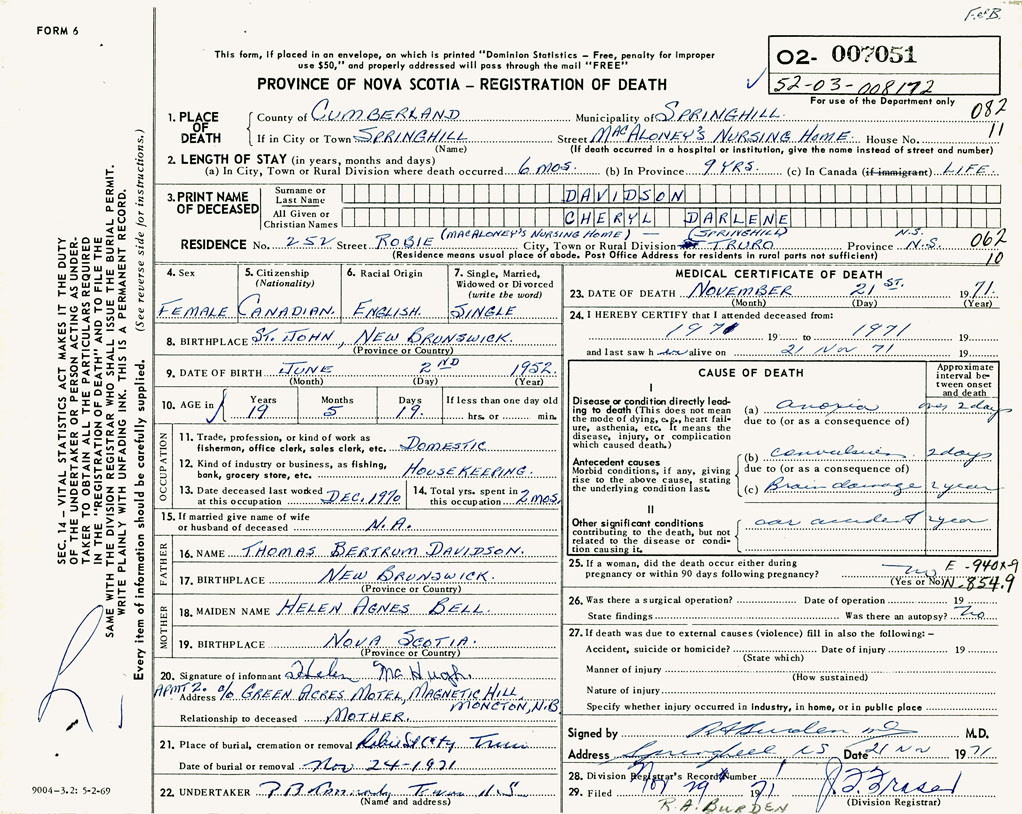 F.&B.
FORM 6
This form, if placed in an envelope, on which is printed "Dominion Statistics – Free, penalty for improper
use $50," and properly addressed will pass through the mail "FREE"
PROVINCE OF NOVA SCOTIA – REGISTRATION OF DEATH
02- 007051
52-03-008172
For use of the Department only
1. PLACE OF DEATH
County of CUMBERLAND Municipality of SPRINGHILL. 082
If in City or Town SPRINGHILL Street MACALONEY'S NURSING HOME. House No. 11
(Name) (If death occurred in a hospital or institution, give the name instead of street and number)
2. LENGTH OF STAY (in years, months and days)
(a) In City, Town or Rural Division where death occurred 6 MOS. (b) In Province 9 YRS. (c) In Canada (if immigrant) LIFE
3. PRINT NAME OF DECEASED
Surname or Last Name DAVIDSON
All Given or Christian Names CHERYL DARLENE
(MACALONEY'S NURSING HOME) – (SPRINGHILL) N.S.
RESIDENCE No. 252 Street ROBIE City, Town or Rural Division TRURO Province N.S. 062
(Residence means usual place of abode. Post Office Address for residents in rural parts not sufficient) 10
4. Sex FEMALE
5. Citizenship (Nationality) CANADIAN.
6. Racial Origin ENGLISH.
7. Single, Married, Widowed or Divorced (write the word) SINGLE
8. BIRTHPLACE ST. JOHN, NEW BRUNSWICK.
(Province or Country)
9. DATE OF BIRTH JUNE 2ND 1952.
(Month) (Day) (Year)
10. AGE in Years 19 Months 5 Days 19. If less than one day old hrs. or min.
OCCUPATION
11. Trade, profession, or kind of work as fisherman, office clerk, sales clerk, etc. DOMESTIC
12. Kind of industry or business, as fishing, bank, grocery store, etc. HOUSEKEEPING.
13. Date deceased last worked at this occupation DEC. 1970
14. Total yrs. spent in this occupation 2 MOS.
15. If married give name of wife or husband of deceased N.A.
FATHER
16. NAME THOMAS BERTRUM DAVIDSON.
17. BIRTHPLACE NEW BRUNSWICK.
(Province or Country)
MOTHER
18. MAIDEN NAME HELEN AGNES BELL.
19. BIRTHPLACE NOVA SCOTIA.
(Province or Country)
20. Signature of informant Helen McHugh
APMT 2. Address c/o GREEN ACRES MOTEL, MAGNETIC HILL,
MONCTON, N.B
Relationship to deceased MOTHER.
21. Place of burial, cremation or removal Robie St Cety Truro
Date of burial or removal Nov 24-1971
22. UNDERTAKER Truro N.S
(Name and address)
9004-3.2: 5-2-69
MEDICAL CERTIFICATE OF DEATH
23. DATE OF DEATH NOVEMBER 21 ST. 1971.
(Month) (Day) (Year)
24. I HEREBY CERTIFY that I attended deceased from:
1971 19 to 1971 19
and last saw her alive on 21 Nov 71 19
CAUSE OF DEATH
Approximate interval between onset and death
I
Disease or condition directly leading to death (This does not mean the mode of dying, e.g., heart failure, asthenia, etc. It means the disease, injury, or complication which caused death.)
(a) anoxia over 2 days
due to (or as a consequence of)
Antecedent causes
Morbid conditions, if any, giving rise to the above cause, stating the underlying condition last.
(b) convulsions 2 days
due to (or as a consequence of)
(c) Brain damage 1 year
II
Other significant conditions contributing to the death, but not related to the disease or condition causing it.
car accident 1 year
25. If a woman, did the death occur either during pregnancy or within 90 days following pregnancy? no
(Yes or No) E -940X-9
N-854.9
26. Was there a surgical operation? Date of operation 19
State findings Was there an autopsy? No
27. If death was due to external causes (violence) fill in also the following: –
Accident, suicide or homicide? Date of injury 19
(State which)
Manner of injury
(How sustained)
Nature of injury
Specify whether injury occurred in industry, in home, or in public place
Signed by RABurden M.D.
Address Springhill NS Date 21 Nov 1971
28. Division Registrar's Record Number 1
29. Filed Nov 29 1971 J.F. Fraser
R.A. BURDEN (Division Registrar)
SEC. 14 – VITAL STATISTICS ACT MAKES IT THE DUTY
OF THE UNDERTAKER OR PERSON ACTING AS UNDERTAKER TO OBTAIN ALL THE PARTICULARS REQUIRED
IN THE "REGISTRATION OF DEATH" AND TO FILE THE
SAME WITH THE DIVISION REGISTRAR WHO SHALL ISSUE THE BURIAL PERMIT.
WRITE PLAINLY WITH UNFADING INK. THIS IS A PERMANENT RECORD.
Every item of information should be carefully supplied. (See reverse side for instructions.)